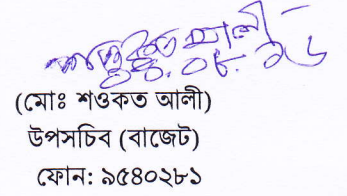 শওকত আলী
(মোঃ শওকত আলী)
উপসচিব (বাজেট)
ফোন: ৯৫৪০২৮১